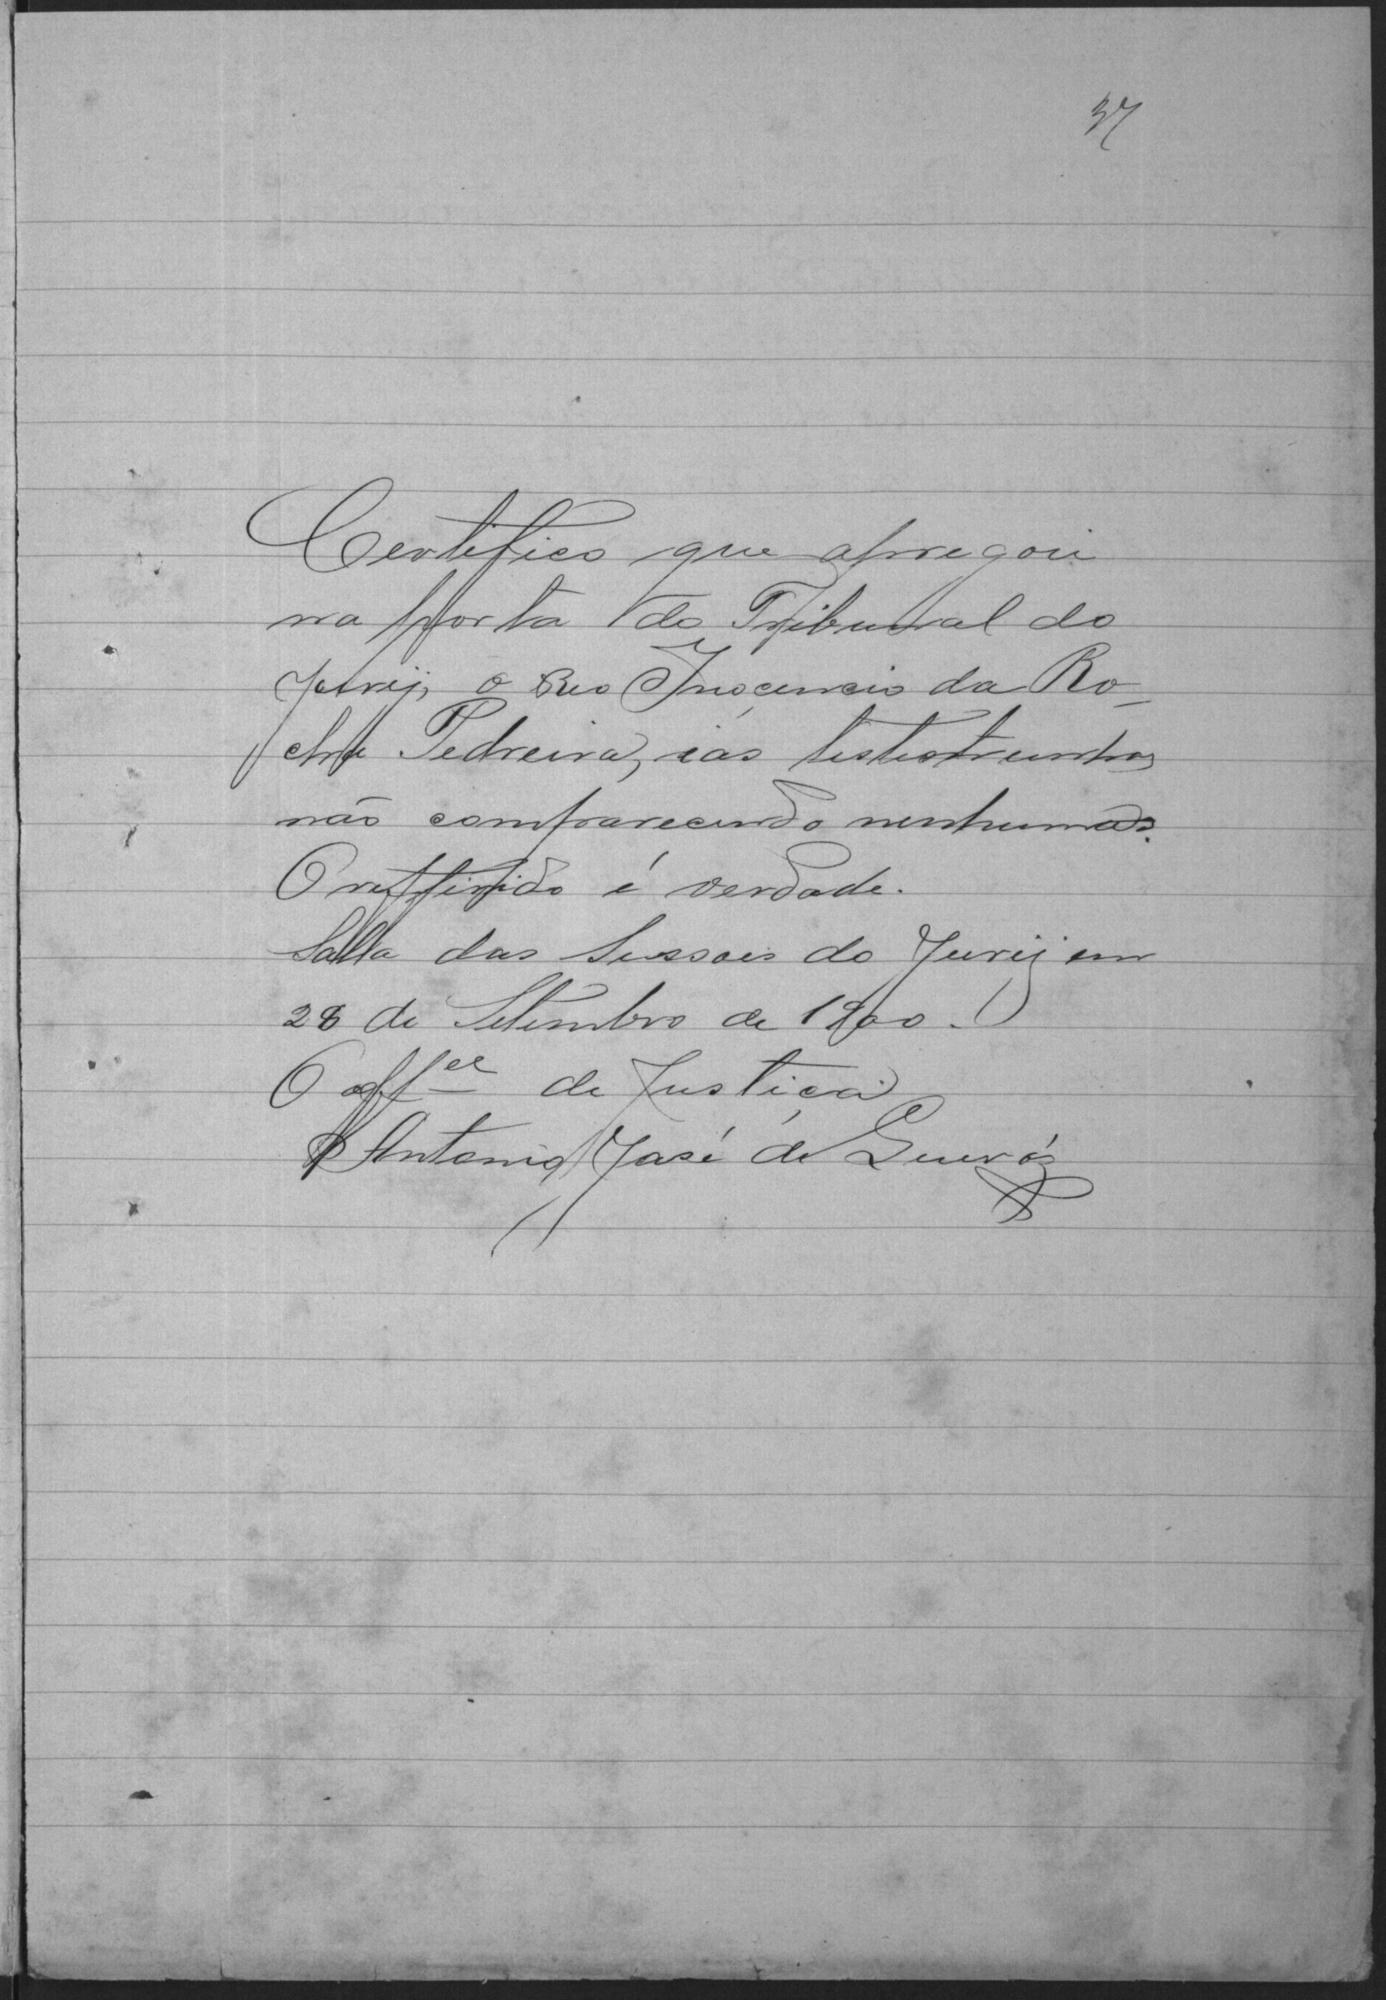 37
Certifico que apregoei
na porta do Tribunal do
Jurij, o Reo Inocencio da Ro-
cha Pedreira, ias testemunhas
não comparecendo nenhuma.
O refferido é verdade.
Salla das Sessoes do Jurij em
28 de Setembro de 1900.
O off.el de Justiça
Antonio José de